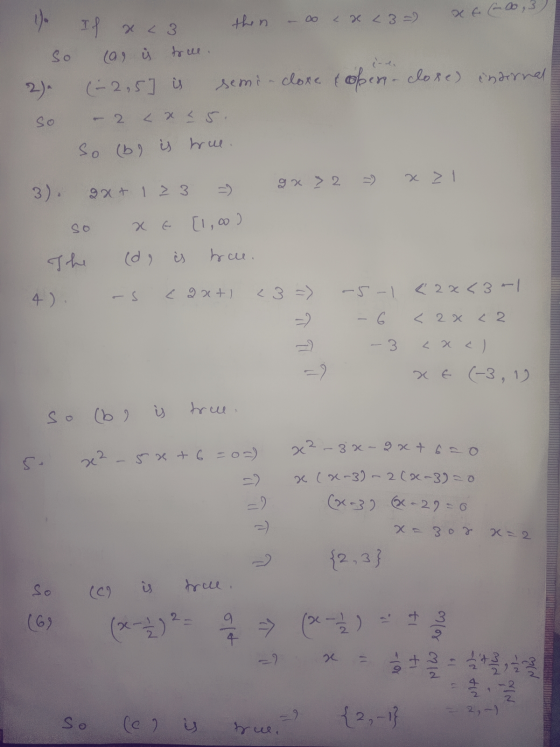 1). If x < 3 then -∞ < x < 3 => x ∈ (-∞, 3)
So (a) is true.
2). (-2, 5] is semi-close (open-close) interval
So -2 < x ≤ 5.
So (b) is true.
3). 2x + 1 ≥ 3 => 2x ≥ 2 => x ≥ 1
So x ∈ [1, ∞)
The (d) is true.
4). -5 < 2x+1 < 3 => -5-1 < 2x < 3-1
=> -6 < 2x < 2
=> -3 < x < 1
=> x ∈ (-3, 1)
So (b) is true.
5. x² - 5x + 6 = 0 => x² - 3x - 2x + 6 = 0
=> x(x-3) - 2(x-3) = 0
=> (x-3) (x-2) = 0
=> x = 3 or x = 2
=> {2, 3}
So (c) is true.
(6) (x - 1/2)² = 9/4 => (x - 1/2) = ± 3/2
=> x = 1/2 ± 3/2 = 1/2 + 3/2, 1/2 - 3/2
= 4/2, -2/2
= 2, -1
So (c) is true. => {2, -1}